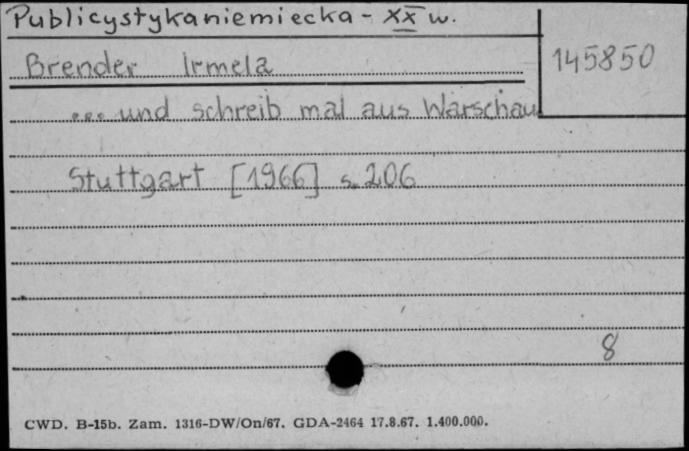 Publicystyka niemiecka - XX w.
145850
Brender Irmela
... und schreib mal aus Warschau
Stuttgart [1966] s. 206
8
CWD. B-15b. Zam. 1316-DW/On/67. GDA-2464 17.8.67. 1.400.000.